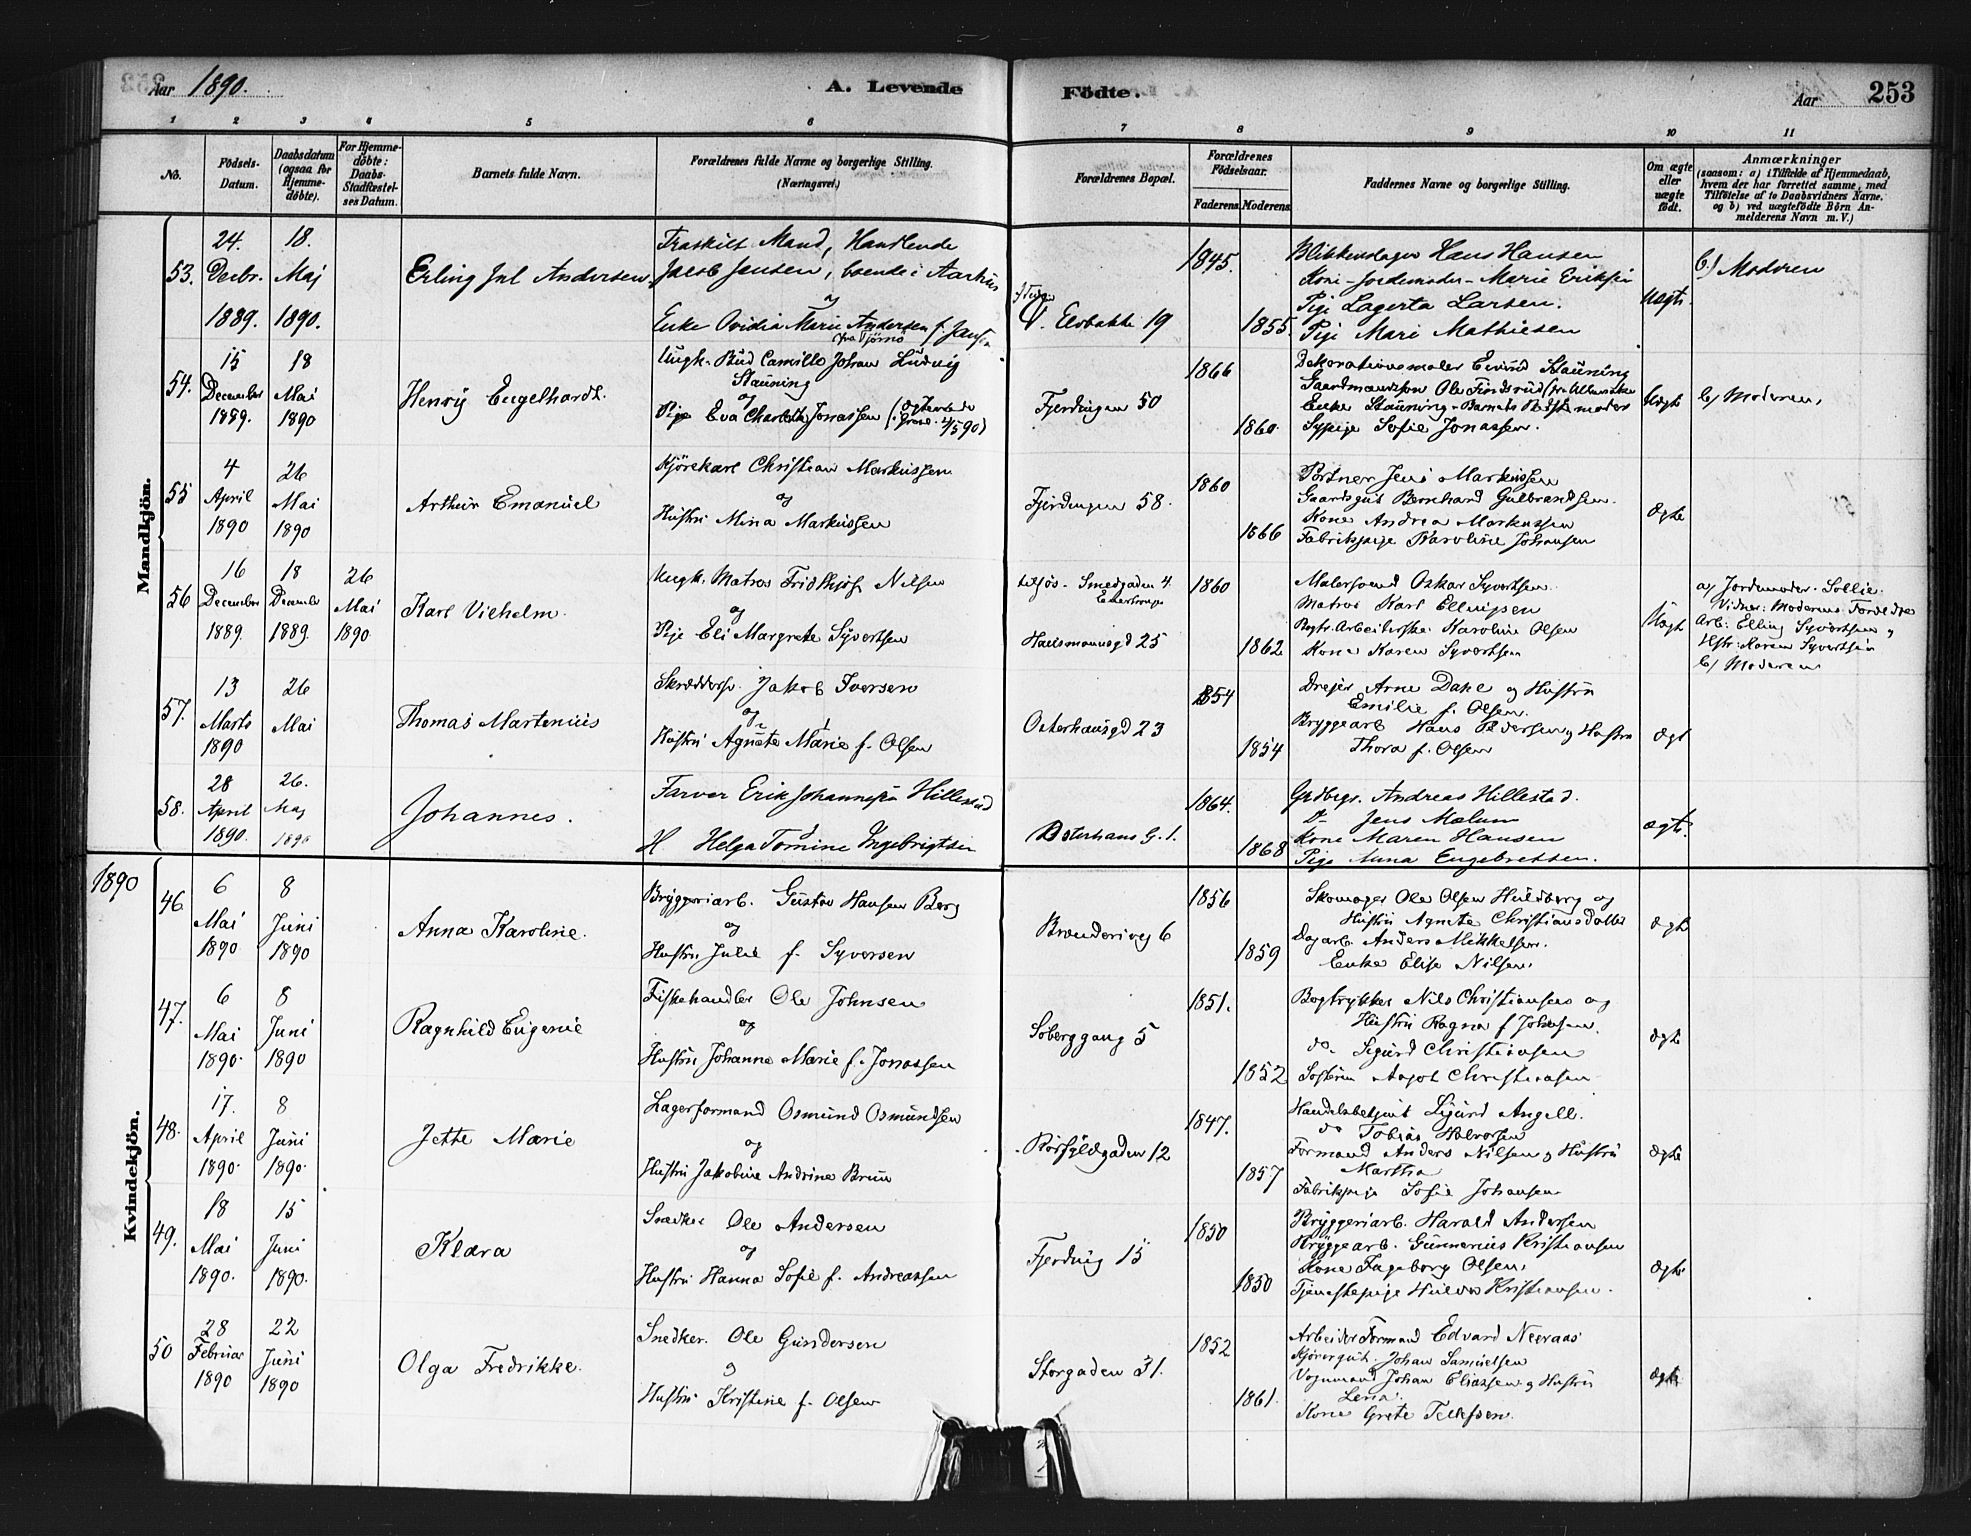 253
Aar 1890.
A. Levende
Födte.
Aar
253
1 2 3 4 5 6 7 8 9 10 11
No.
Födsels-
Datum.
Daabsdatum
(ogsaa for
Hjemme-
døbte).
For Hjemme-
døbte:
Daabs-
Stadfæstel-
ses Datum.
Barnets fulde Navn.
Forældrenes fulde Navne og borgerlige Stilling.
(Næringsvei.)
Forældrenes Bopæl.
Forældrenes
Födselsaar.
Faderens.
Moderens.
Faddernes Navne og borgerlige Stilling.
Om ægte
eller
uægte
födt.
Anmærkninger
(saasom: a) i Tilfælde af Hjemmedaab,
hvem der har forrettet samme, med
Tilföielse af to Daabsvidners Navne.
og b) ved uægtefödte Börn An-
melderens Navn m. V.)
Mandkjön.
53.
24.
Decbr.
1889.
18.
Maj
1890.
Erling Jul Andersen
Fraskilt Mand, Handlende
Jacob Jensen, boende i Aarhus
og
Enke Ovidia Marie Andersen f. Jansen
fra Tjømø
V. Elvbakke 19
1845.
1855.
Blikkenslager Hans Hansen
Kone - Jordemoder - Marie Eriksen
Pige Lagerta Larsen.
Pige Mari Mathiesen
Uægte.
b.) Moderen
54.
15
December
1889.
18
Mai
1890
Henry Engelhardt.
Ungk. Bud Camillo Johan Ludvig
Stauning
og
Pige Eva Charlotte Jonassen
Fjerdingen 50
1866
1860
Dekorationsmaler Eivind Stauning
Enke Stauning - Barnets
Sypige Sofie Jonassen.
Uægte
b/ Moderen,
55
4
April
1890
26
Mai
1890
Arthur Emanuel
Kjørekarl Christian Markussen
og
Hustru Mina Markussen
Fjerdingen 58.
1860
1866
Portner Jens Markussen
Gaardsgut Bernhard Gulbrandsen.
Kone Andrea Markussen
Fabrikpige Karoline Johansen
Ægte
56
16
December
1889.
18
December
1889.
26
Mai
1890
Karl Vilhelm.
Ungk. Matros Fridthjof Nilsen
og
Pige Eli Margrete Syvertsen
Smedgaden 4.
Hausmannsgd 25
1860
1862
Malersvend Oskar Syvertsen.
Matros Karl Ellingsen
Arbeiderske Karoline Olsen
Kone Karen Syvertsen
Uægte
a) Jordemoder Sollie.
Vidner: Moderens Forældre
Arb. Elling Syvertsen og
Hstr. Karen Syvertsen
b/ Moderen
57.
13
Marts
1890
26
Mai
Thomas Martenius
Skrædders. Jakob Iversen
og
Hustru Agnete Marie f. Olsen
Osterhausgd 23
1854
1854
Drejer Arne Dahl og Hustru
Emilie f. Olsen.
Bryggearb Hans Pedersen og Hustru
Thora f. Olsen
Ægt
58.
28
April
1890.
26.
Maj
1890
Johannes.
Farver Erik Johannesen Hillestad
H Helga Tomine Ingebrigtsen
Osterhaus G. 1.
1864.
1868
Grdbrgr. Andreas Hillestad.
Do Jens Mælum
Kone Maren Hansen
Pige Anna Engebretsen.
ægte.
1890
Kvindekjön.
46
6
Mai
1890
8
Juni
1890
Anna Karoline.
Bryggeriarb. Gustav Hansen Berg
og
Hustru Julie f. Syversen
Brenderivej 6
1856
1859
Skomager Ole Olsen Huldberg og
Hustru Agnete Christiansdatter
Dagarb. Anders Mikkelsen.
Enke Elise Nilsen.
Ægte
47.
6
Mai
1890
8
Juni
1890
Ragnhild Eugenie
Fiskehandler Ole Johnsen
og
Hustru Johanne Marie f. Jonassen
Soberggang 5
1851.
1852
Bogtrykker Nils Christiansen og
Hustru Ragna f Johnsen.
do. Sigurd Christiansen
Christiansen
Ægte
48.
17.
April
1890.
8
Juni
1890.
Jette Marie
Lagerformand Osmund Osmundsen
og
Hustru Jakobine Andrine Bruun
Rørfyldgaden 12
1847.
1857
Handelsbetjent Sigurd Angell.
do Tobias Halvorsen
Formand Anders Nilsen og Hustru
Martha
Fabrikpige Sofie Johansen
Ægte
49.
18
Mai
1890.
15
Juni
1890.
Klara
Snedker Ole Andersen
og
Hustru Hanna Sofie f. Andreassen
Fjerding 15
1850
1850
Bryggeriarb. Harald Andersen
Bryggearb. Gunnerius Kristiansen
Kone Ingeborg Olsen.
Tjenestepige Hulda Kristiansen.
Ægte
50
28
Februar
1890
22
Juni
1890
Olga Fredrikke.
Snedker. Ole Gundersen
og
Hustru Kristine f. Olsen
Storgaden 31.
1852
1861.
Arbeider Formand Edvard Neeraas
Kjøregut. Johan Samuelsen
Vognmand Johan Eliassen og Hustru
Lena.
Kone Grete Tellefsen.
Ægte